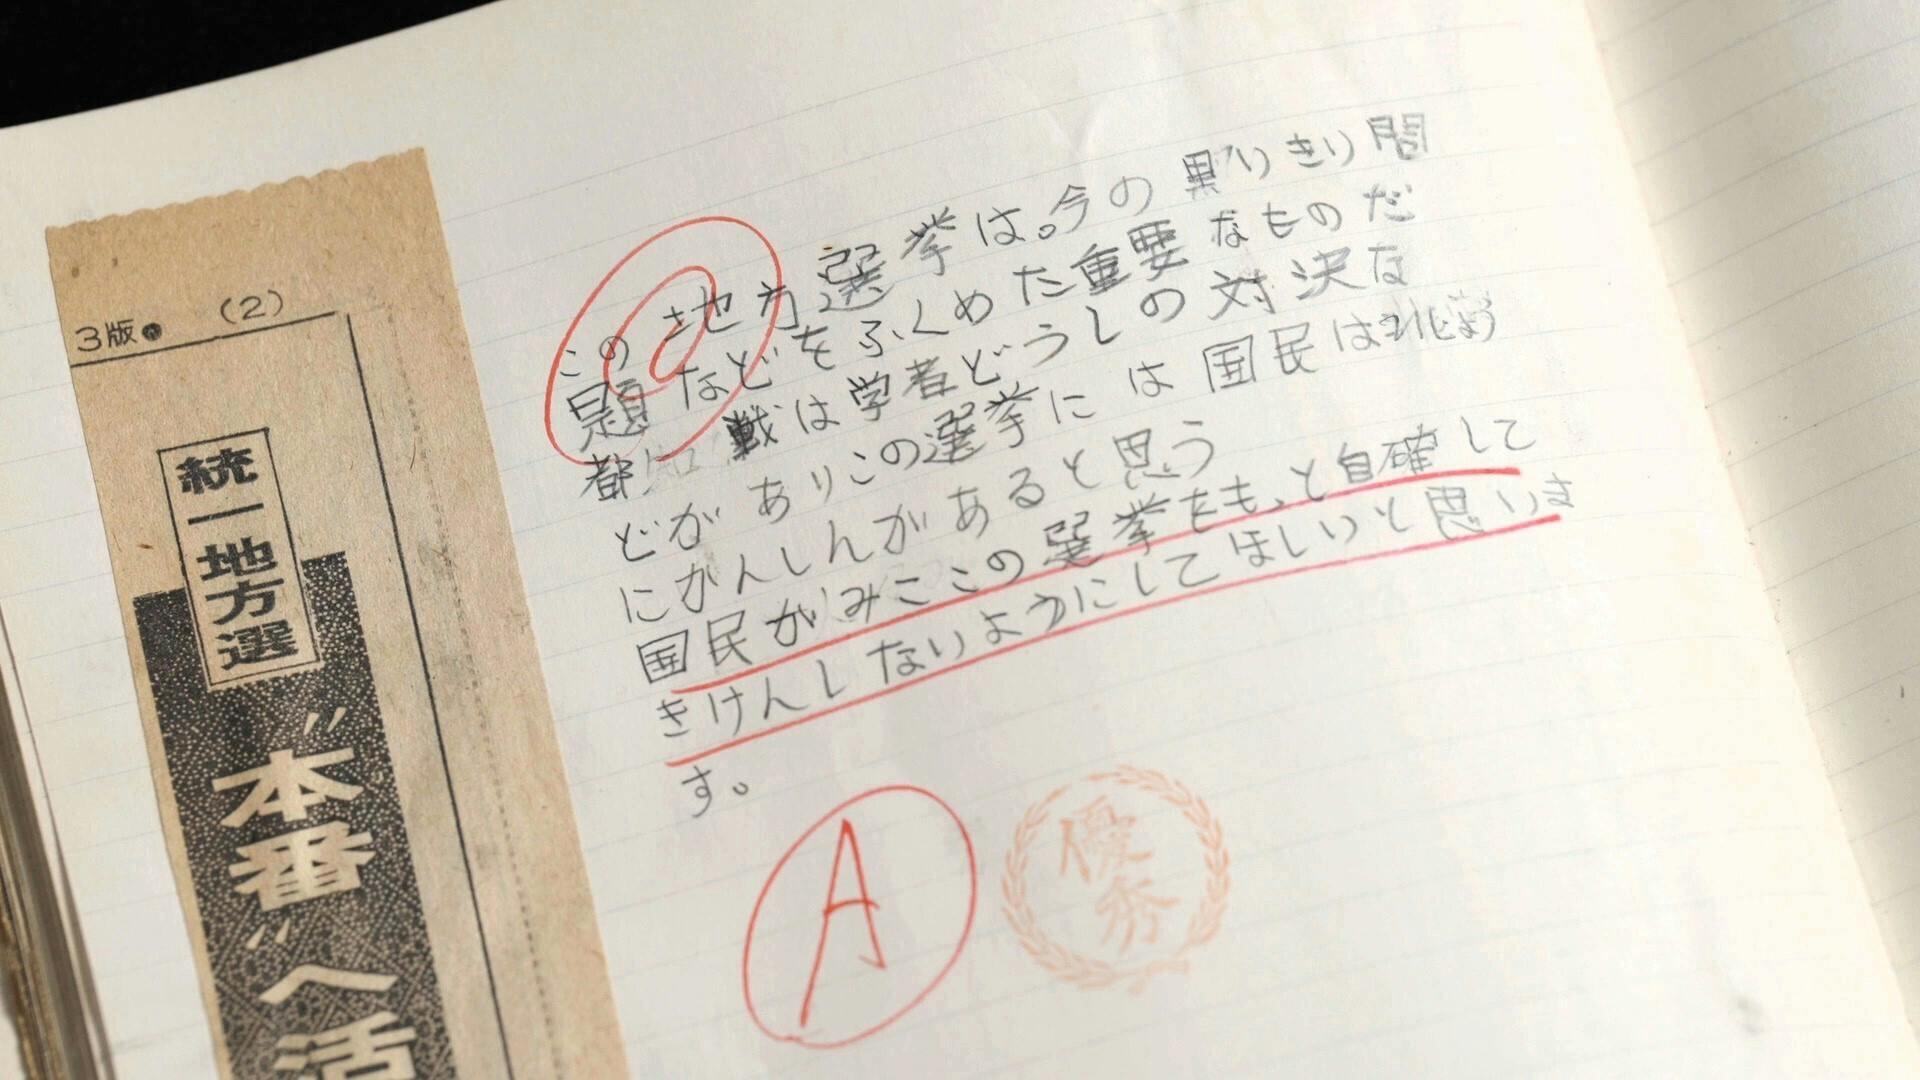 3版 (2)
統一地方選
"本番"へ活
この地方選挙は。今の黒いきり問
題などをふくめた重要なものだ
都知戦は学者どうしの対決な
どがありこの選挙には国民は
にかんしんがあると思う
国民がみここの選挙をもっと自確して
きけんしないようにしてほしいと思いま
す。
A
優秀